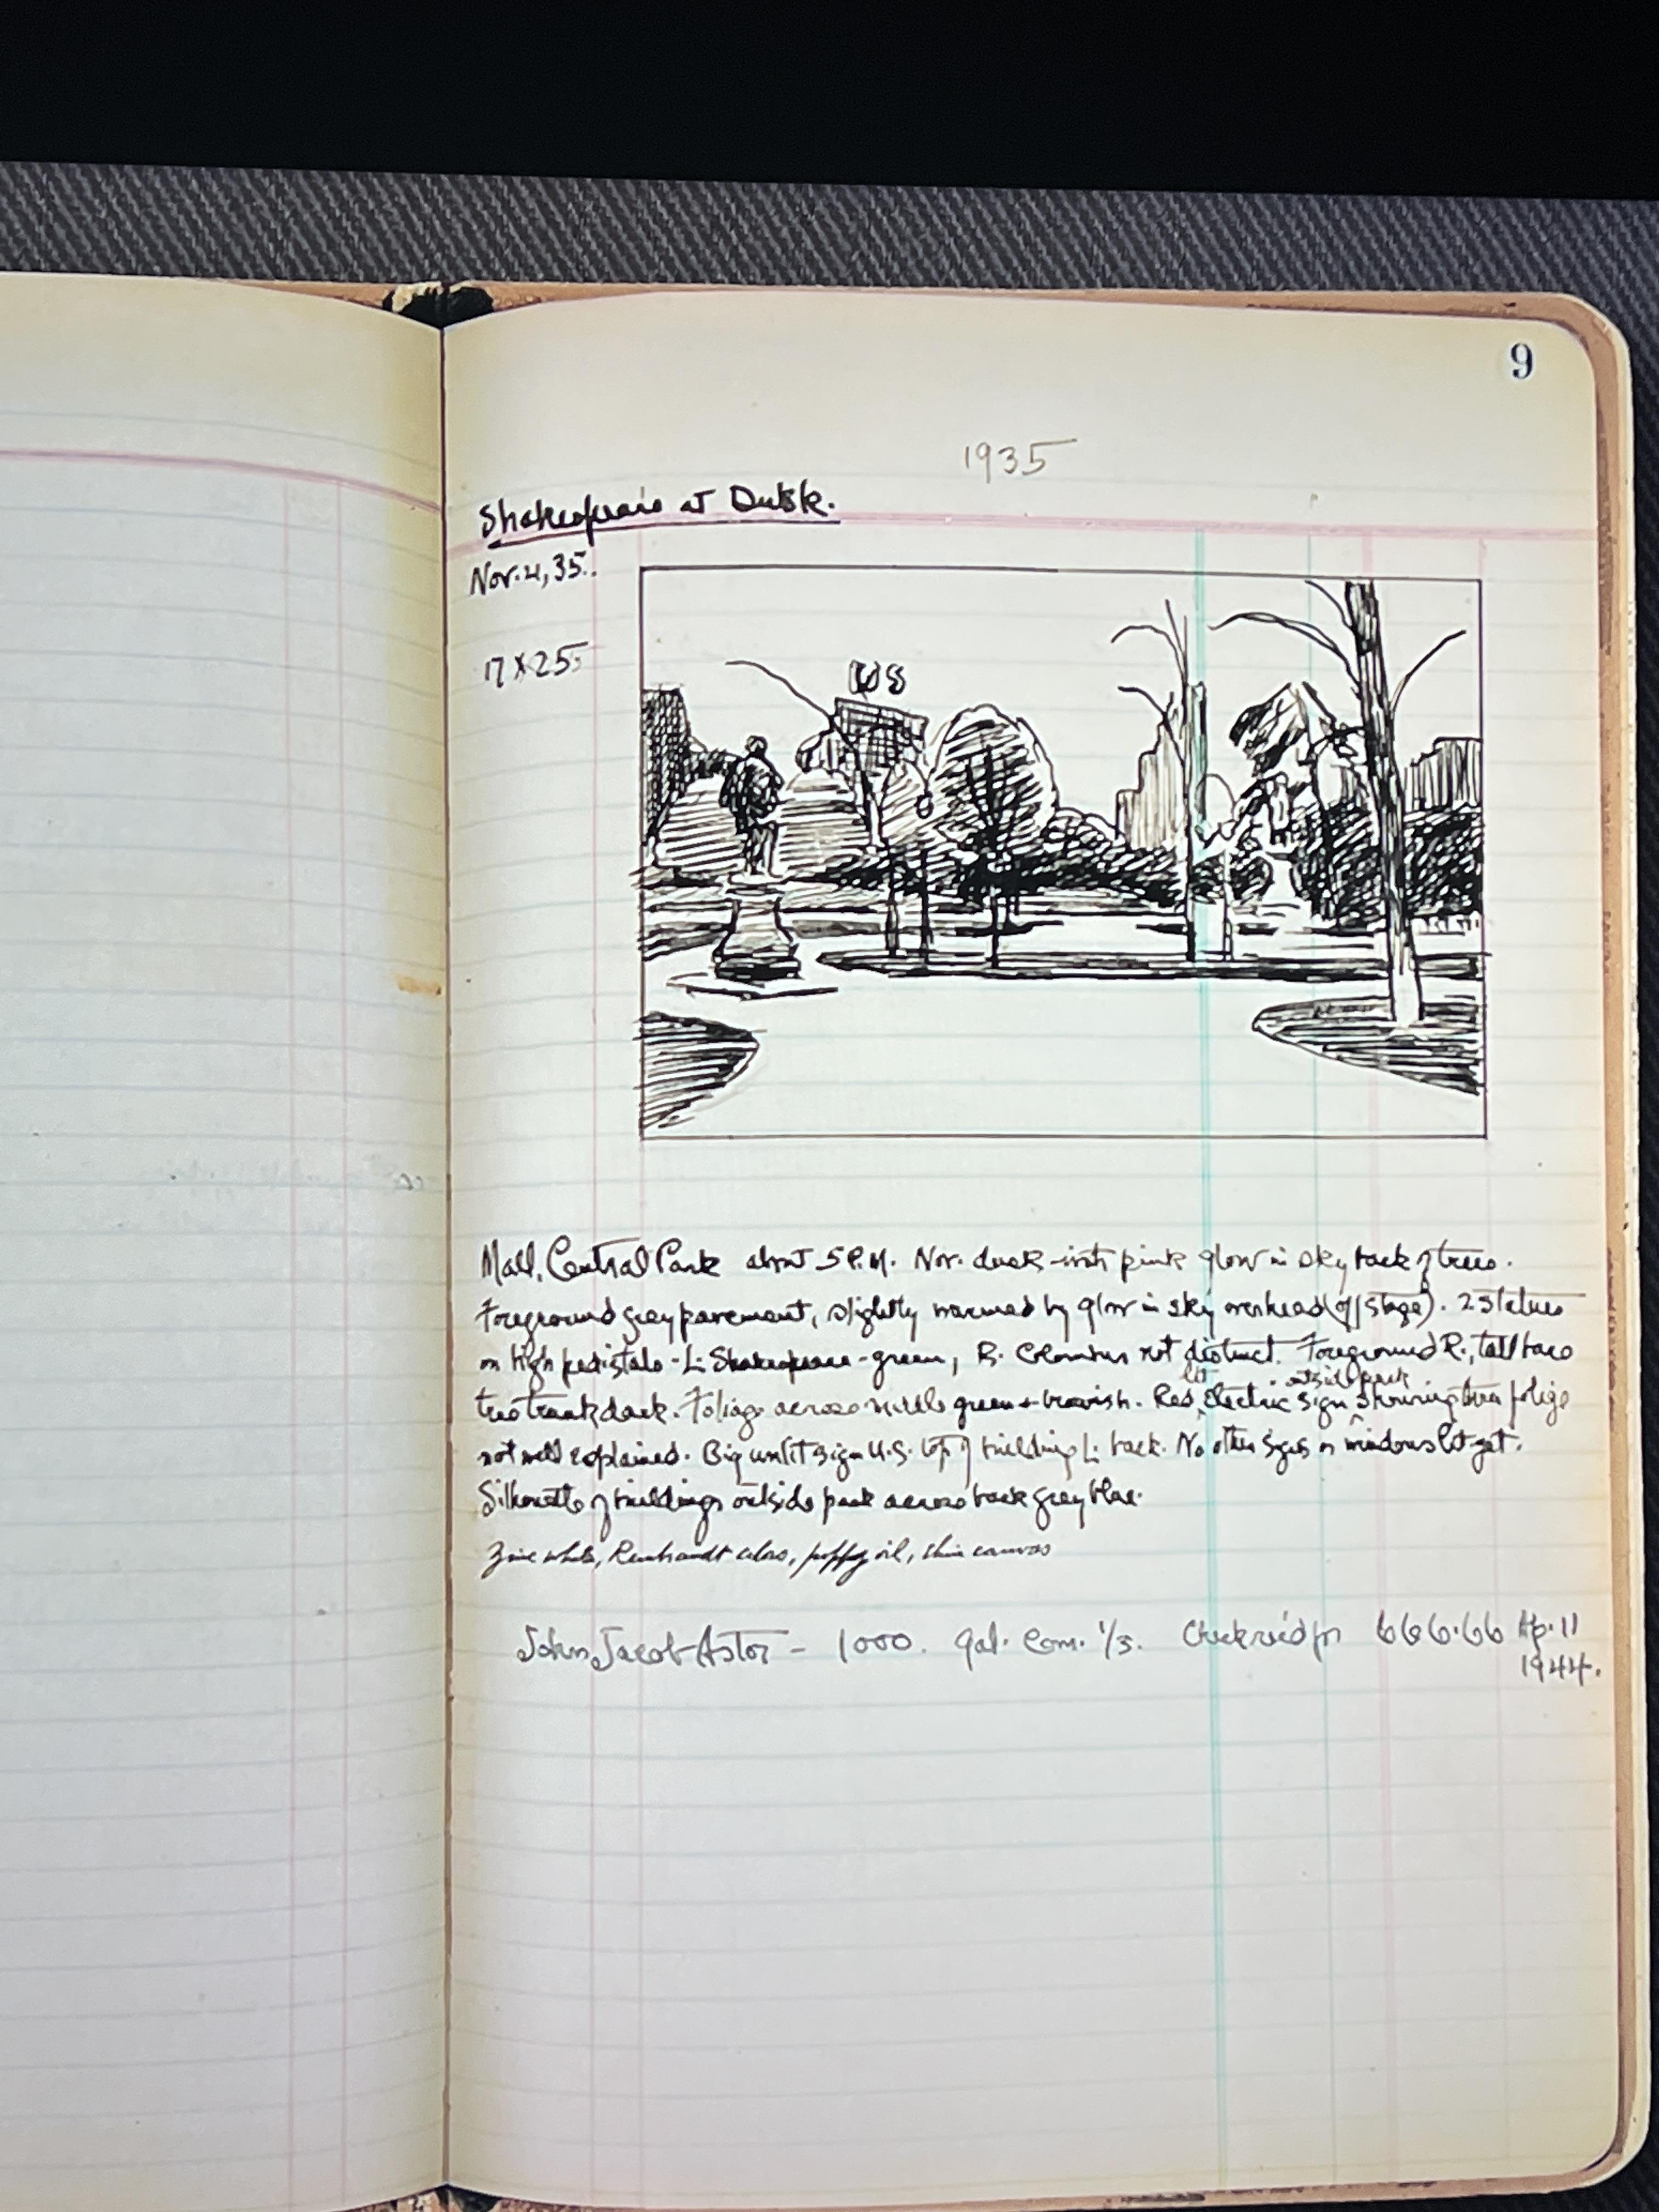 9
1935
Shakespeare at Dusk.
Nov. 4, 35.
17 x 25.
US
Mall, Central Park about 5 P.M. Nov. dusk with pink glow in sky back of trees.
Foreground grey pavement, slightly warmed by glow in sky overhead (off stage). 2 statues
on high pedistals - L. Shakespeare - green, R. Columbus not distinct. Foreground R., tall bare
lit outside park
tree trunk dark. Foliage across middle green + brownish. Red, Electric sign ^ shining thru folige
not well explained. Big unlit sign U.S. top of building L. back. No other signs or windows lit yet.
Silhouette of buildings outside park across back grey blue.
Zinc white, Rembrandt colors, poppy oil, canvas
John Jacob Astor - 1000. Gal. Com. 1/3. Check rec'd for 666.66 Ap. 11
1944.